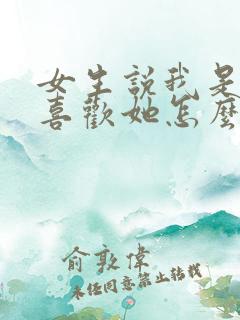 女生說我是
喜歡她怎麼
俞敦偉
未经同意禁止转载